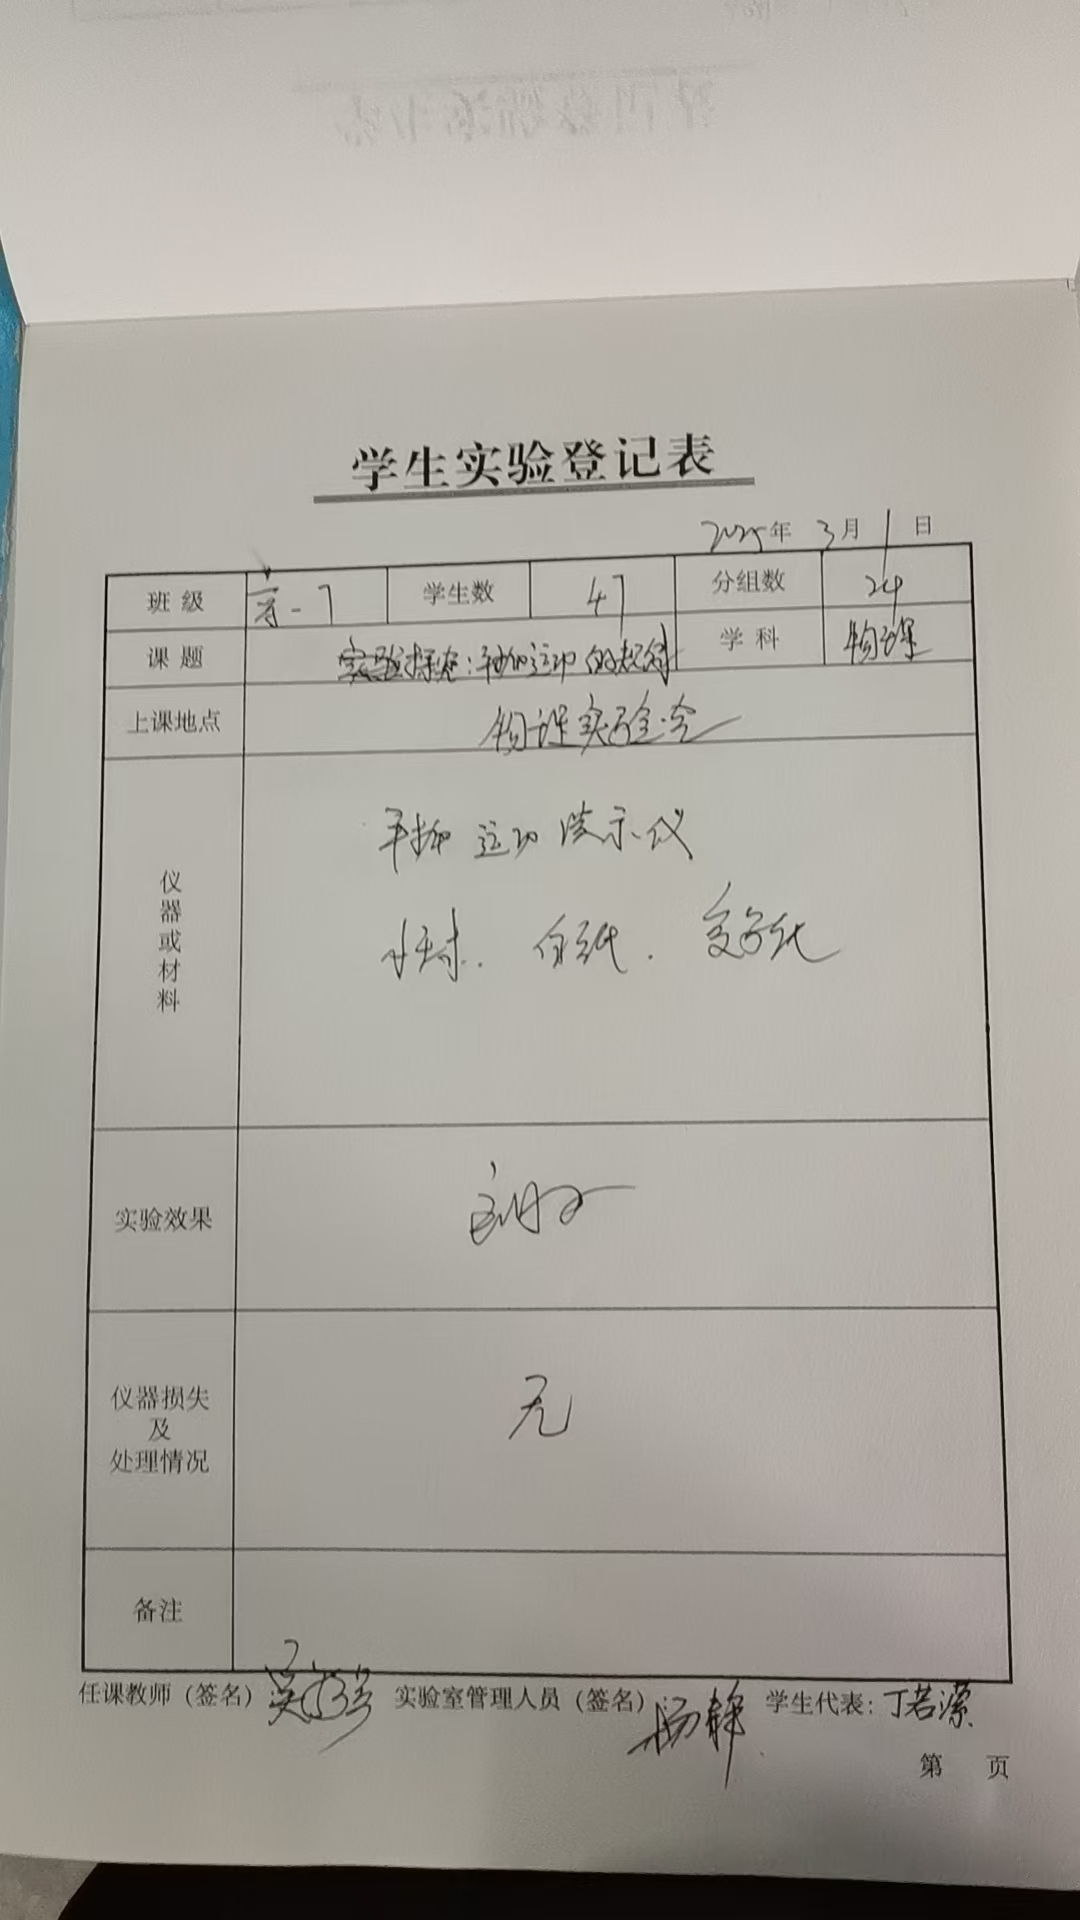 学生实验登记表
2025年 3月 1日
班级 高一7 学生数 47 分组数 24
课题 实验探究：平抛运动的规律 学科 物理
上课地点 物理实验室
仪器或材料
平抛运动演示仪
小球、白纸、复写纸
实验效果
仪器损失
及
处理情况
无
备注
任课教师（签名） 实验室管理人员（签名）杨静 学生代表：丁若潆
第 页